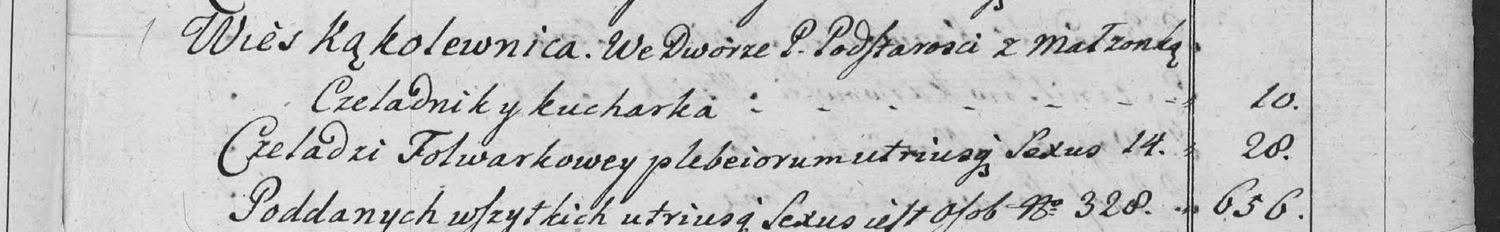 Wieś Kąkolewnica. We Dworze P. Podstarości z Małżonką.
Czeladnik y kucharka - - - - - - - 10.
Czeladzi Folwarkowey plebeiorum utriusq; Sexus 14. - 28.
Poddanych wszytkich utriusq; Sexus iest Osob Nro 328. - 656.